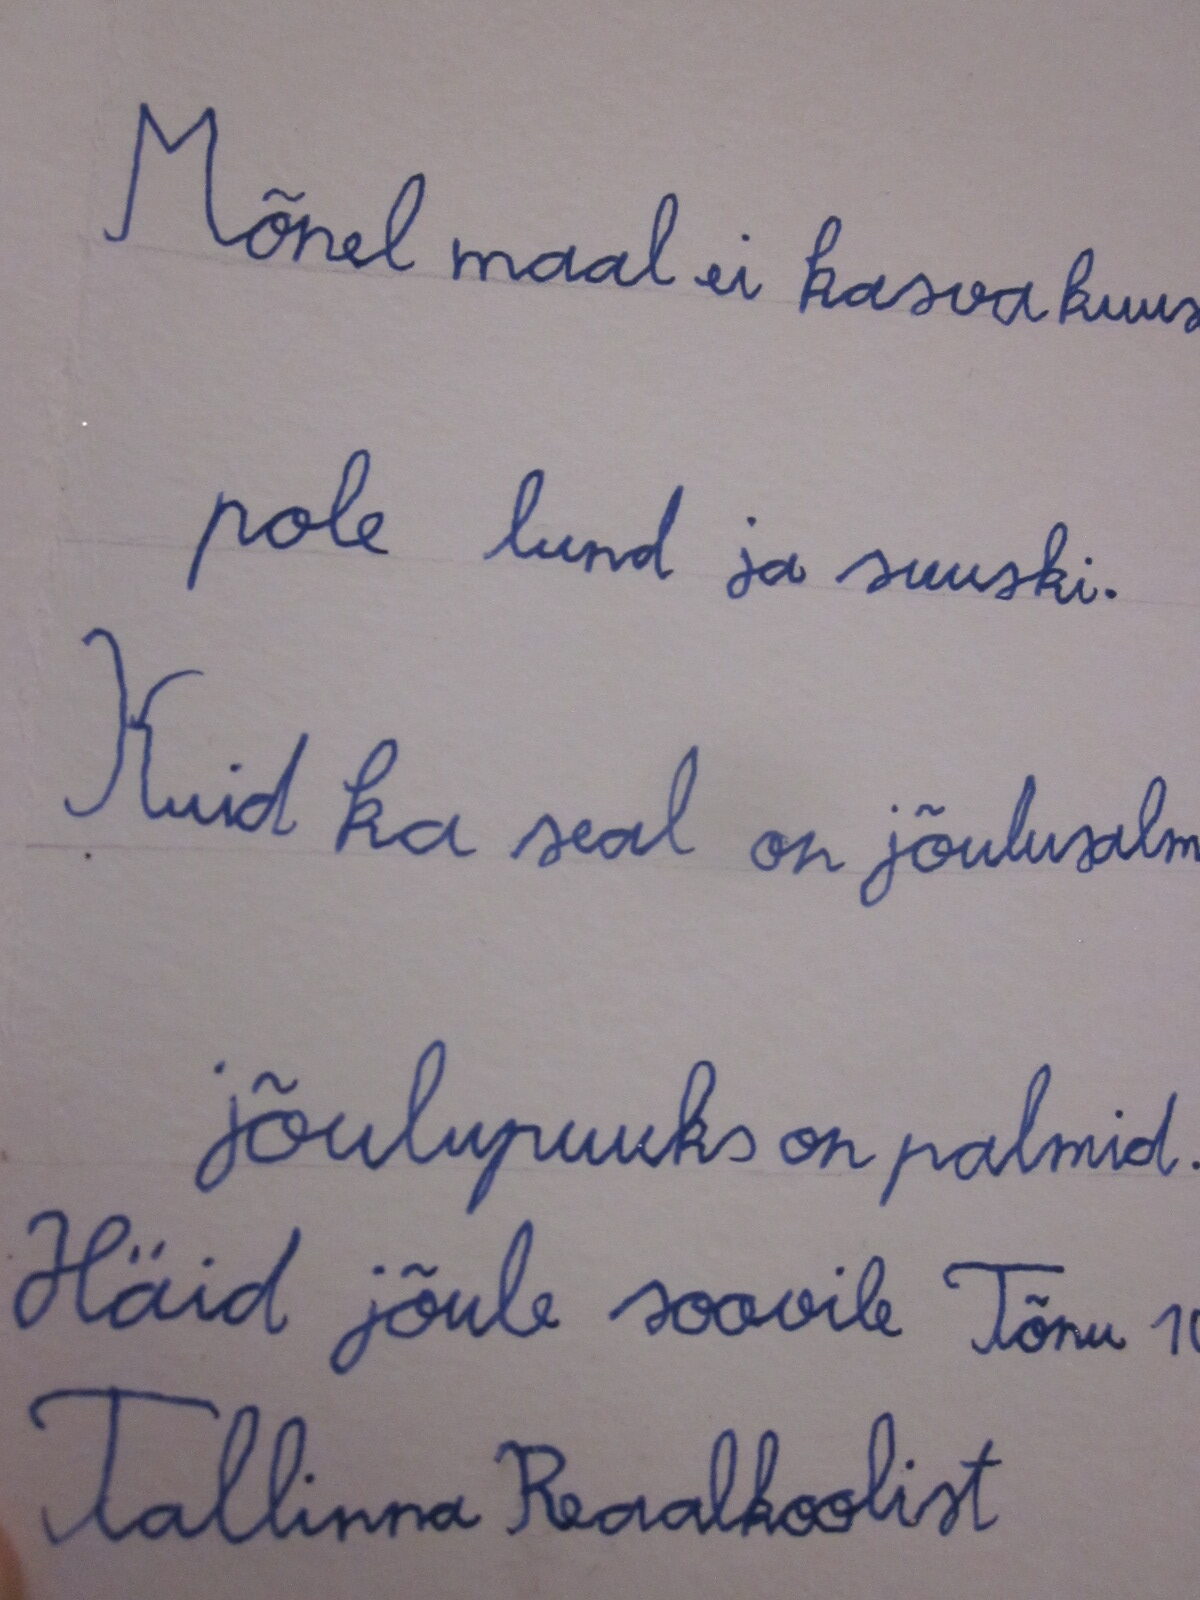 Mõnel maal ei kasva kuus
pole lund ja suuski.
Kuid ka seal on jõulusalm
jõulupuuks on palmid.
Häid jõule soovile Tõnu 10
Tallinna Reaalkoolist